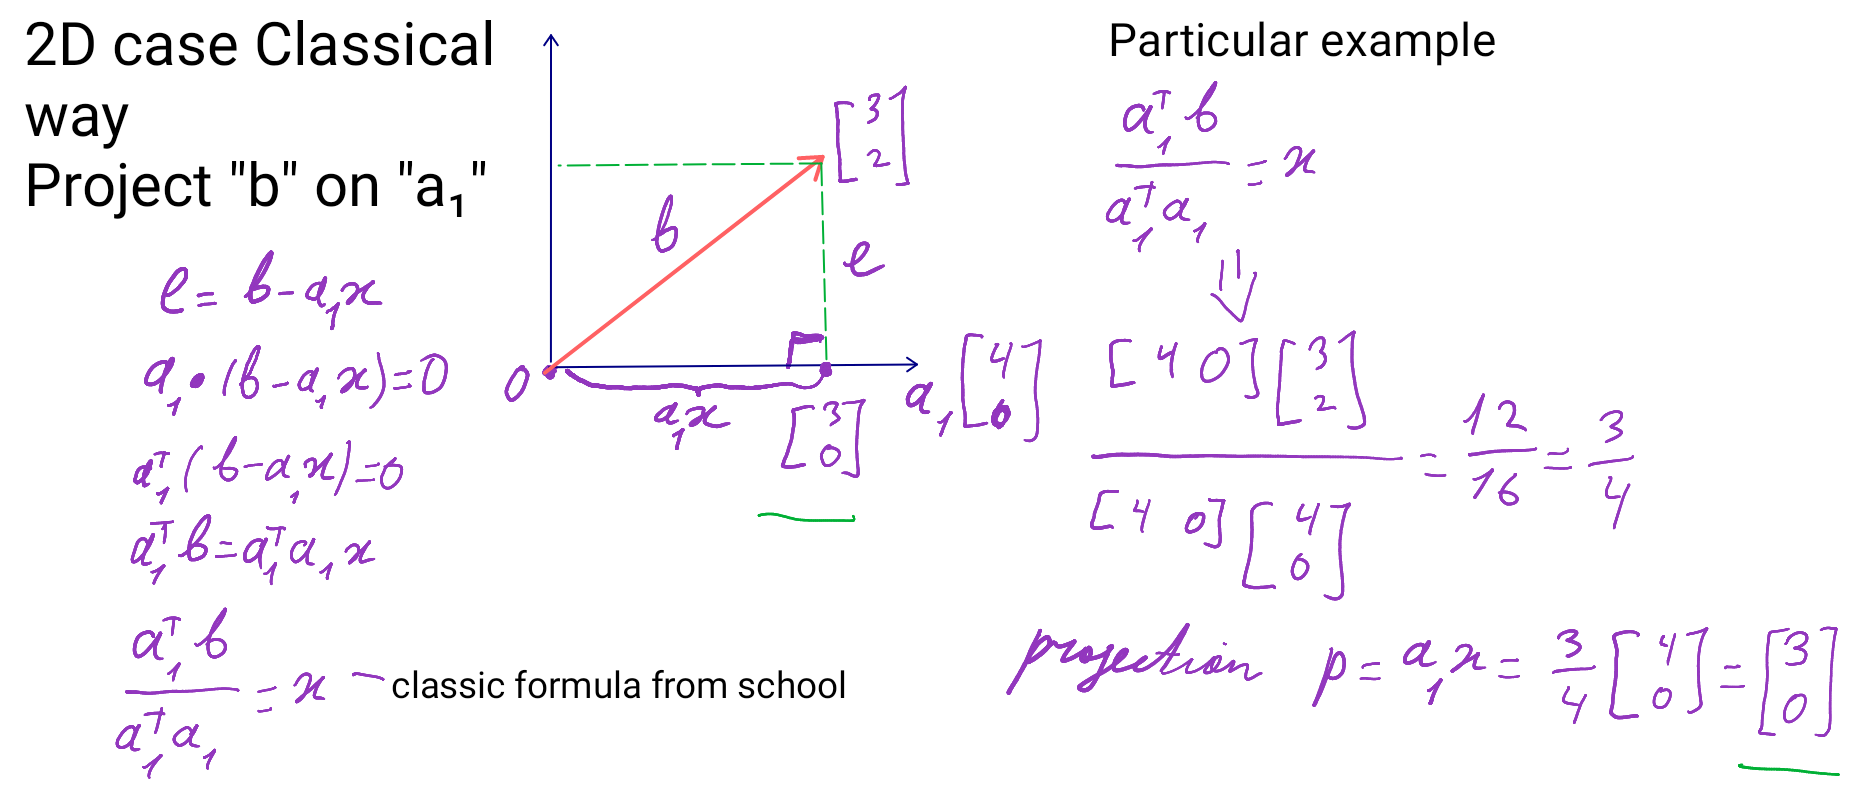 2D case Classical
way
Project "b" on "a₁"
e = b - a₁x
a₁ • (b - a₁x) = 0
a₁ᵀ (b - a₁x) = 0
a₁ᵀ b = a₁ᵀ a₁ x
a₁ᵀ b / a₁ᵀ a₁ = x
classic formula from school
[3 2]
b
e
0
a₁x
[3 0]
a₁ [4 0]
Particular example
a₁ᵀ b / a₁ᵀ a₁ = x
⇓
[4 0] [3 2] / [4 0] [4 0] = 12/16 = 3/4
projection p = a₁x = 3/4 [4 0] = [3 0]